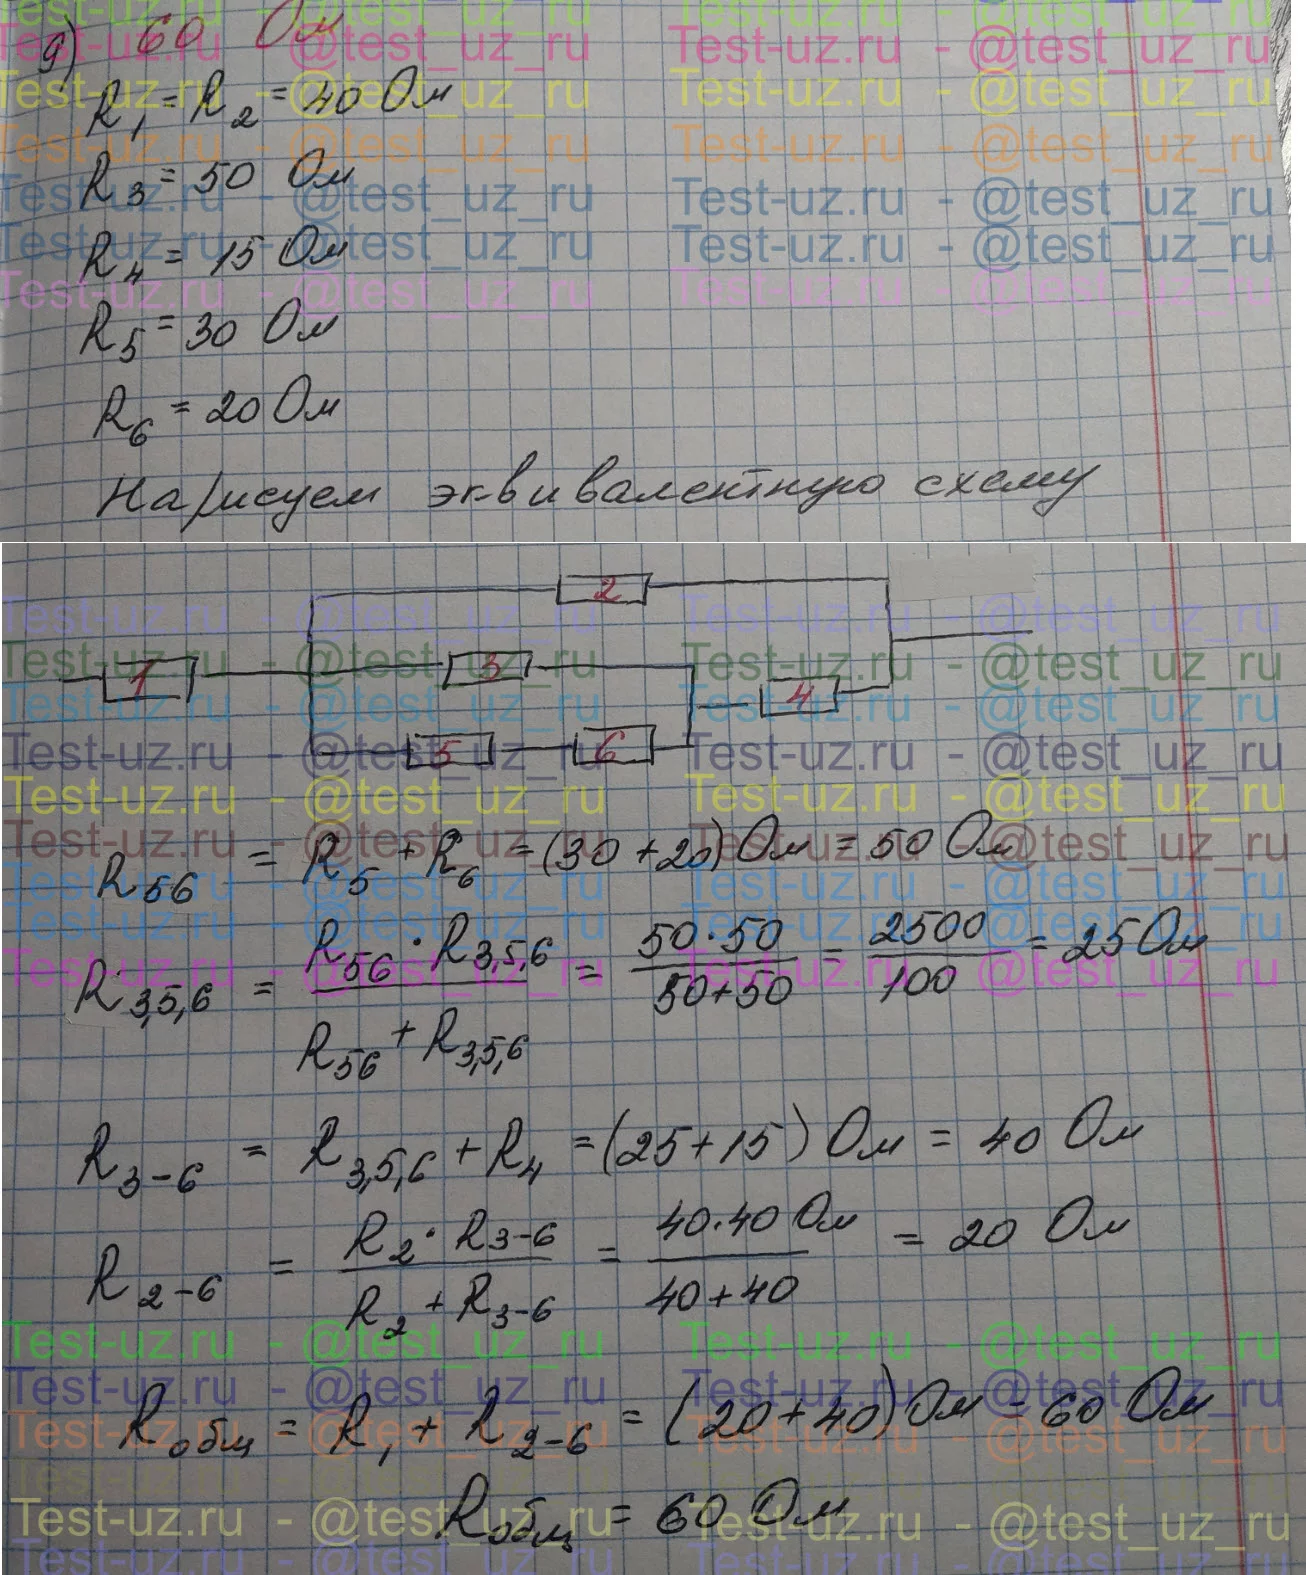 g) 60 Ом
R₁ = R₂ = 40 Ом
R₃ = 50 Ом
R₄ = 15 Ом
R₅ = 30 Ом
R₆ = 20 Ом
Нарисуем эквивалентную схему
2
1 3 4
5 6
R₅₆ = R₅ + R₆ = (30 + 20) Ом = 50 Ом
R₃,₅,₆ = (R₅₆ · R₃,₅,₆) / (R₅₆ + R₃,₅,₆) = (50 · 50) / (50 + 50) = 2500 / 100 = 25 Ом
R₃₋₆ = R₃,₅,₆ + R₄ = (25 + 15) Ом = 40 Ом
R₂₋₆ = (R₂ · R₃₋₆) / (R₂ + R₃₋₆) = (40 · 40 Ом) / (40 + 40) = 20 Ом
Rобщ = R₁ + R₂₋₆ = (20 + 40) Ом = 60 Ом
Rобщ = 60 Ом
Test-uz.ru - @test_uz_ru